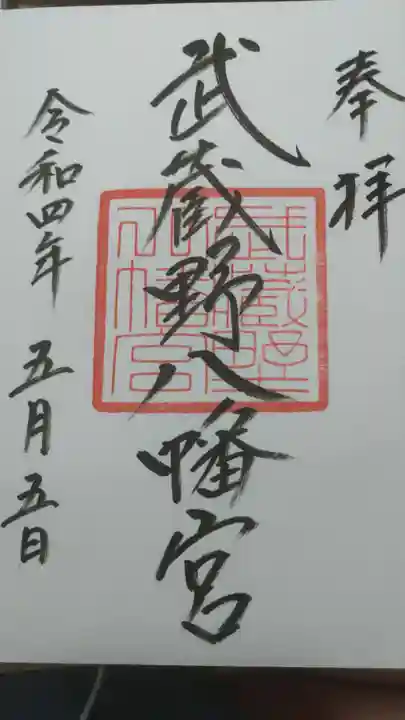 奉拝
武蔵野八幡宮
武蔵野
八幡宮
令和四年 五月五日